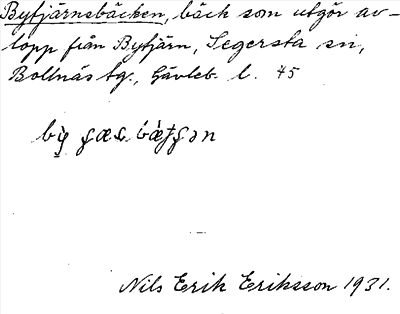 Byfjärnsbäcken, bäck som utgör av-
lopp från Bytjärn, Segersta sn,
Bollnäs tg., Gävleb. l. 45
Nils Erik Eriksson 1931.